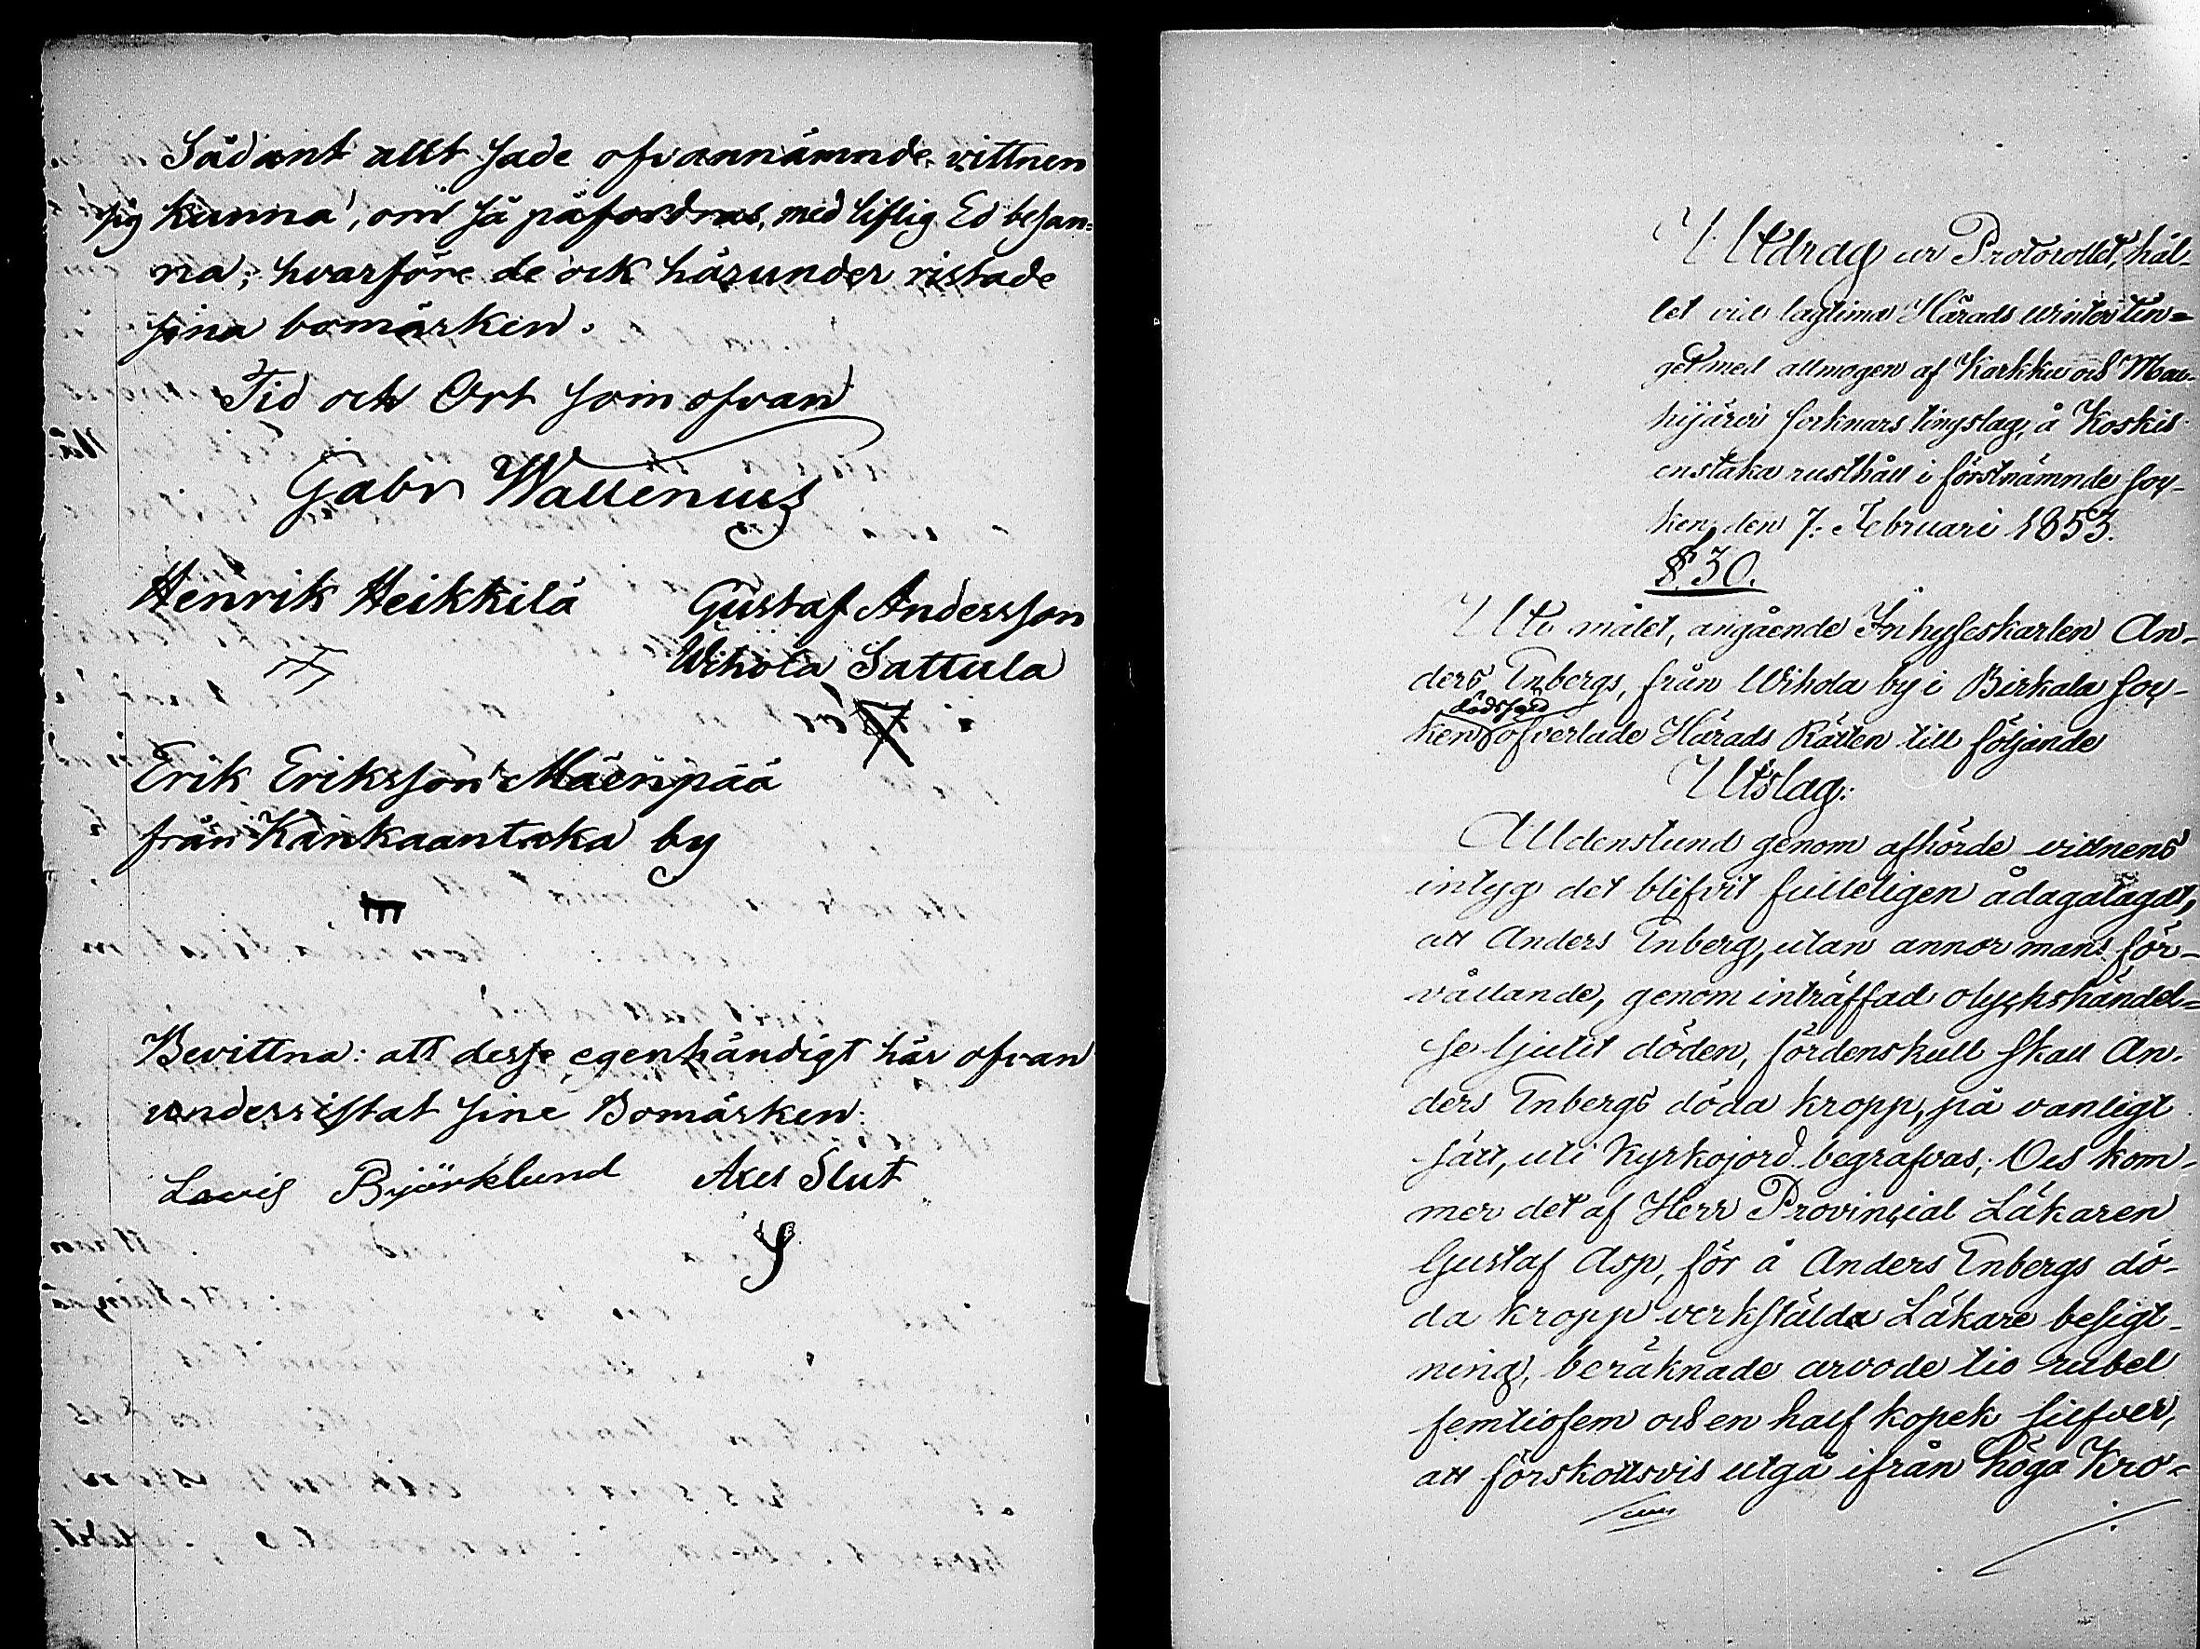 Sådant allt sade ofvannämnde vittnen
sig kunna, om så påfordras, med liflig Ed besan=
na; hvarföre de ock härunder ristade
sina bomärken.
Tid och Ort som ofvan
Gabr Wallenius
Henrik Heikkilä
Gustaf Andersson
Wihola Sattula
Erik Eriksson Mäenpää
från Kankaantaka by
Bevittna: att desse egenhändigt här ofvan
underristat sine Bomärken.
Lovis Björklund Axel Slut
Utdrag ur Protocollet, hål-
let vid lagtima Härads Winter tin=
get med allmogen af Karkku och Mou-
hijärvi Socknars tingslag, å Koskis
enstaka rusthåll i förstnämnde Soc-
ken, den 7. Februari 1853.
§ 30.
Uti målet, angående Inhyseskarlen An-
ders Enbergs, från Wihola by i Birkala Soc-
dödsfärd
ken öfverlade Härads Rätten till följande
Utslag:
Alldenstund genom afhörde vittnens
intyg det blifvit fulleligen ådagalagdt,
att Anders Enberg, utan annor mans för-
vållande, genom inträffad olyckshändel=
se ljutit döden, fördenskull skall An-
ders Enbergs döda kropp, på vanligt
sätt, uti Kyrkojord begrafvas; Och kom-
mer det af Herr Provincial Läkaren
Gustaf Asp, för å Anders Enbergs dö-
da kropp verkstälda Läkare besigt-
ning, beräknade arvode tio rubel
femtiofem och en half kopek silfver,
att förskottsvis utgå ifrån höga Kro-